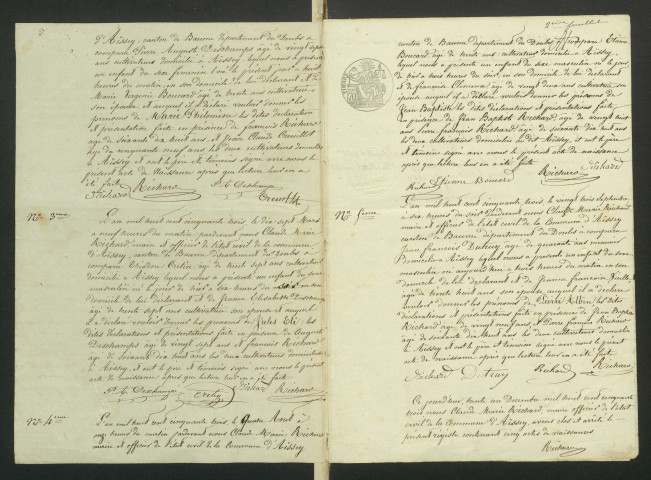 d'Aïssey, canton de Baume département du Doubs a
comparu Pierre Auguste Deschamps âgé de vingt sept
ans cultivateur domicilié à Aïssey, lequel nous a présenté
un enfant du sexe féminin né le présent jour à huit
heures du matin, en son domicile de lui déclarant et de
Marie Virginie Bouvard âgé de trente ans cultivatrice
son épouse et auquel il a déclaré vouloir donner les
prénoms de Marie Philomène les dites déclaration
et présentation faite en présence de françois Richard
âgé de soixante dix huit ans et Claude
âgé de cinquante neuf ans les deux cultivateurs domiciliés
à Aïssey et ont le père et témoins signé avec nous le
présent acte de Naissance après que lecture leur en a
été faite
Richard Richard P. A. Deschamps
No. 3ème L'an mil huit cent cinquante trois le dix sept Mars
à neuf heures du matin, pardevant nous Claude Marie
Richard, maire et officier de l'état civil de la commune
d'Aïssey, canton de Baume département du Doubs a
comparu âgé de trente sept ans cultivateur
domicilié à Aïssey lequel nous a présenté un enfant du sexe
masculin né le jour de hier à six heures du soir en son
domicile de lui déclarant et de Jeanne Elisabeth Deschamps
âgé de trente sept ans cultivatrice son épouse et auquel
il a déclaré vouloir donner les prénoms de Jules Eli les
dites déclarations et présentations faite en présence de Auguste
Deschamps âgé de vingt sept ans et françois Richard
âgé de soixante dix huit ans les deux cultivateurs domiciliés
à Aïssey et ont le père et témoins signé avec nous le présent
acte de naissance après que lecture leur en a été faite
P. A. Deschamps Richard Richard
No. 4ème L'an mil huit cent cinquante trois le quatre Avril à
onze heures du matin pardevant nous Claude Marie Richard
maire et officier de l'état civil de la Commune d'Aïssey
2ème feuillet
canton de Baume département du Doubs a comparu Etienne
Bouvard âgé de trente ans cultivateur domicilié à Aïssey,
lequel nous a présenté un enfant de sexe masculin né le jour
de hier à trois heures du soir en son domicile de lui déclarant
et de françoise Clémence âgé de vingt deux ans cultivatrice son
épouse auquel il a déclaré vouloir donner les prénoms de
Jean Baptiste les dites déclarations et présentations faite
en présence de Jean Baptiste Richard âgé de vingt huit
ans Pierre françois Richard âgé de soixante dix huit ans
les deux cultivateurs domiciliés du dit Aïssey, et ont le père
et témoins signé avec nous le présent acte de naissance
après que lecture leur en a été faite
Richard Etienne Bouvard Richard Richard
No. 5ème L'an mil huit cent cinquante trois, le vingt trois septembre
à six heures du soir pardevant nous Claude Marie Richard
maire et officier de l'état civil de la Commune d'Aïssey
canton de Baume département du Doubs a comparu
Jean françois âgé de quarante ans
domicilié à Aïssey lequel nous a présenté un enfant du sexe
masculin né aujourd'hui à trois heures du matin en son
domicile de lui déclarant et de françoise
âgé de trente huit ans son épouse auquel il a déclaré
vouloir donner les prénoms de Pierre Albin les dites
déclarations et présentations faite en présence de Jean Baptiste
Richard âgé de vingt neuf ans et Pierre françois Richard
âgé de soixante dix huit ans les deux cultivateurs domiciliés
à Aïssey et ont le père et témoins signé avec nous le présent
acte de naissance après que lecture leur en a été faite
Richard Richard Richard
Ce jourd'hui, trente un Décembre mil huit cent cinquante
trois nous Claude Marie Richard, maire officier de l'état
civil de la Commune d'Aïssey, avons clos et arrêté le
présent registre contenant cinq actes de naissances
Richard